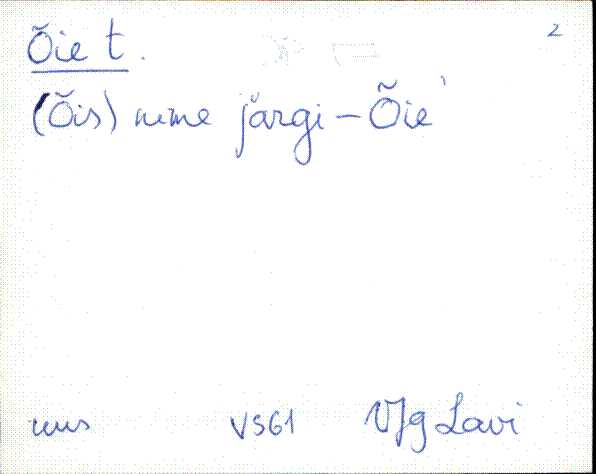 2
Õie t.
(Õis) nime järgi – Õie'
uus VS61 VJg Lavi